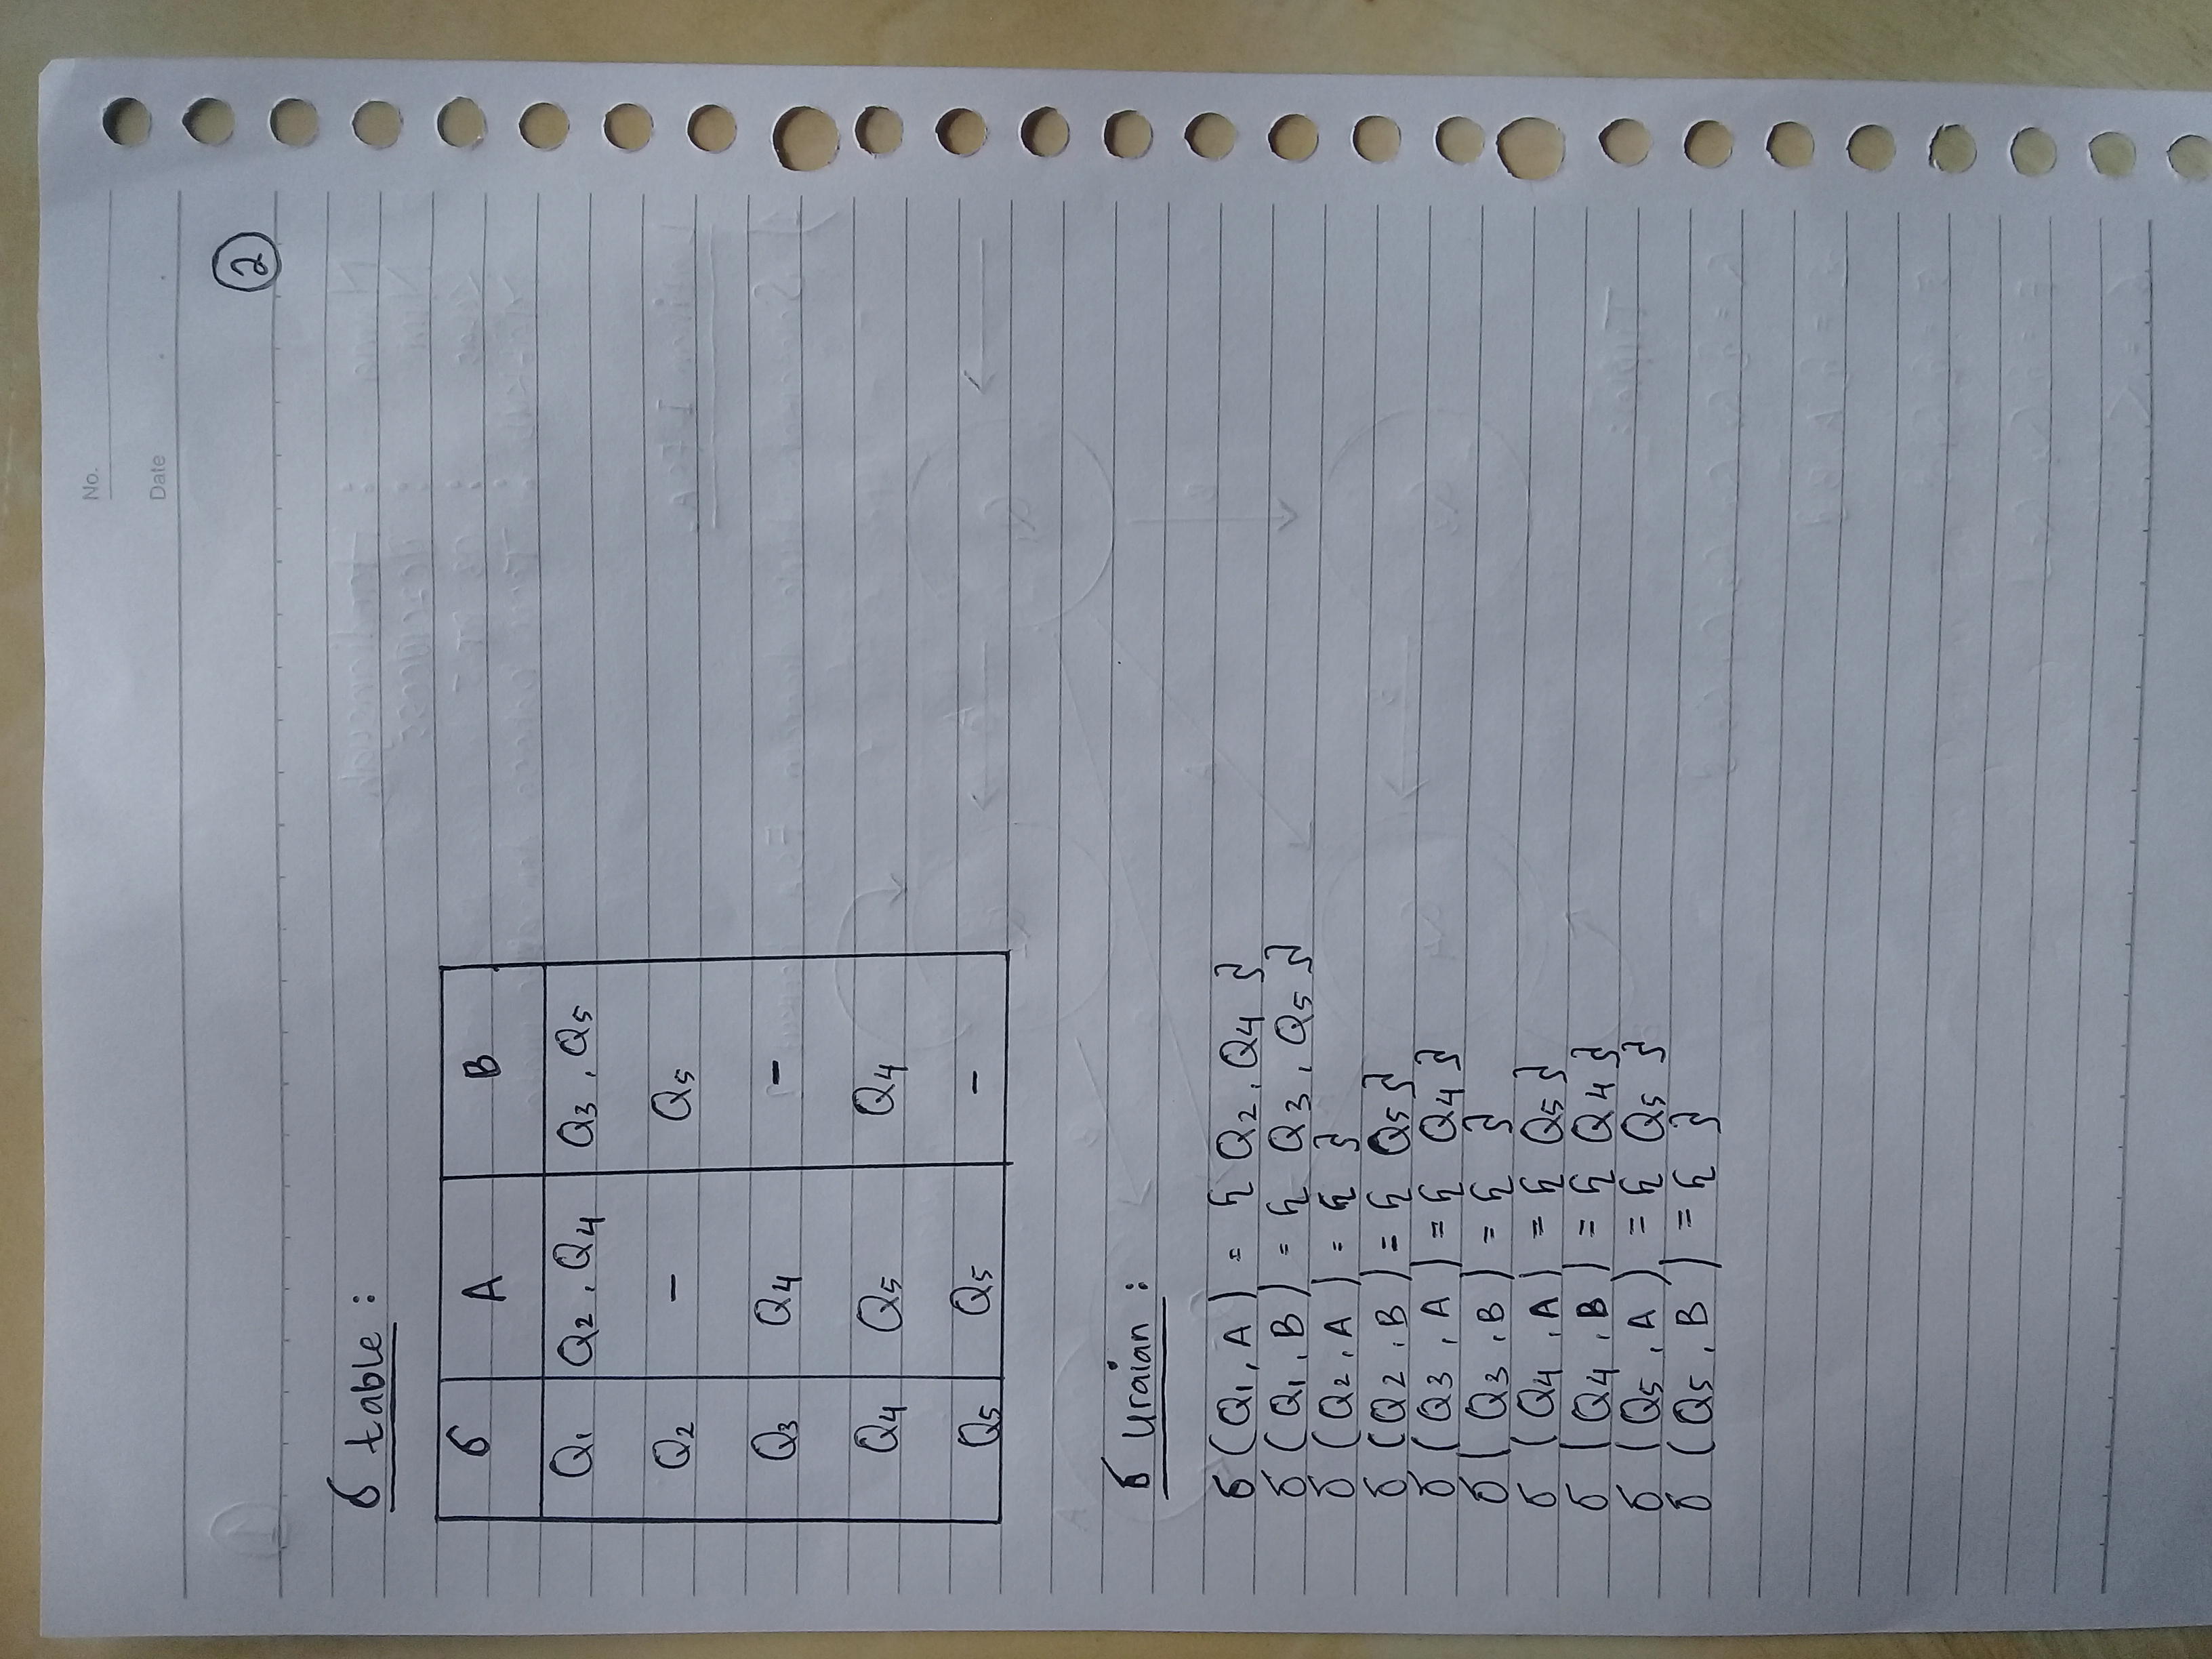 No.
Date
2
δ table :
δ A B
Q1 Q2 , Q4 Q3 , Q5
Q2 - Q5
Q3 Q4 -
Q4 Q5 Q4
Q5 Q5 -
δ Uraian :
δ (Q1, A) = { Q2, Q4 }
δ (Q1, B) = { Q3, Q5 }
δ (Q2, A) = { }
δ (Q2, B) = { Q5 }
δ (Q3, A) = { Q4 }
δ (Q3, B) = { }
δ (Q4, A) = { Q5 }
δ (Q4, B) = { Q4 }
δ (Q5, A) = { Q5 }
δ (Q5, B) = { }